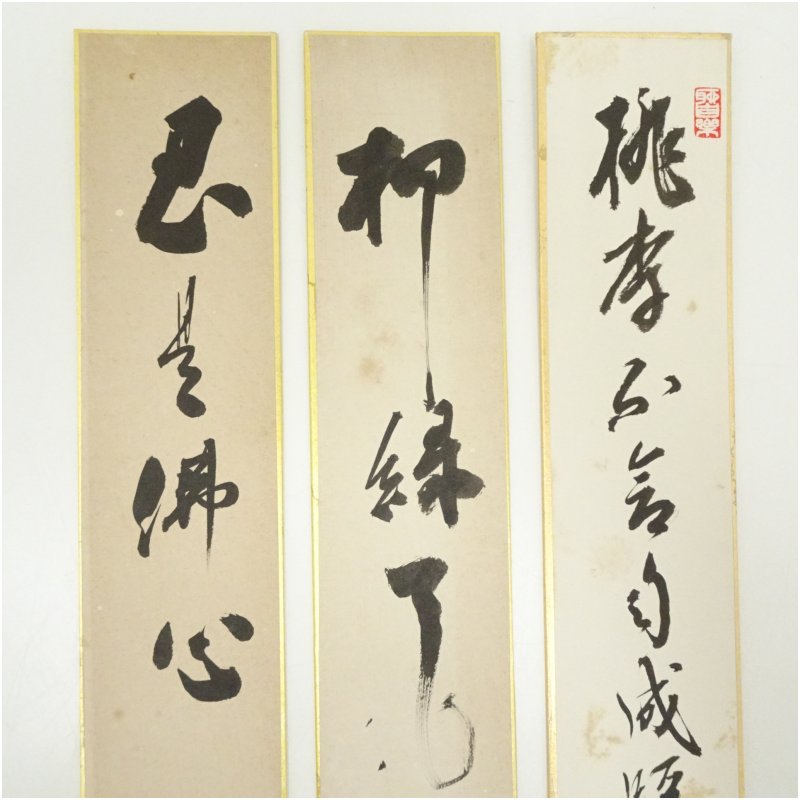 桃李不言自成
柳緑
忍是佛心